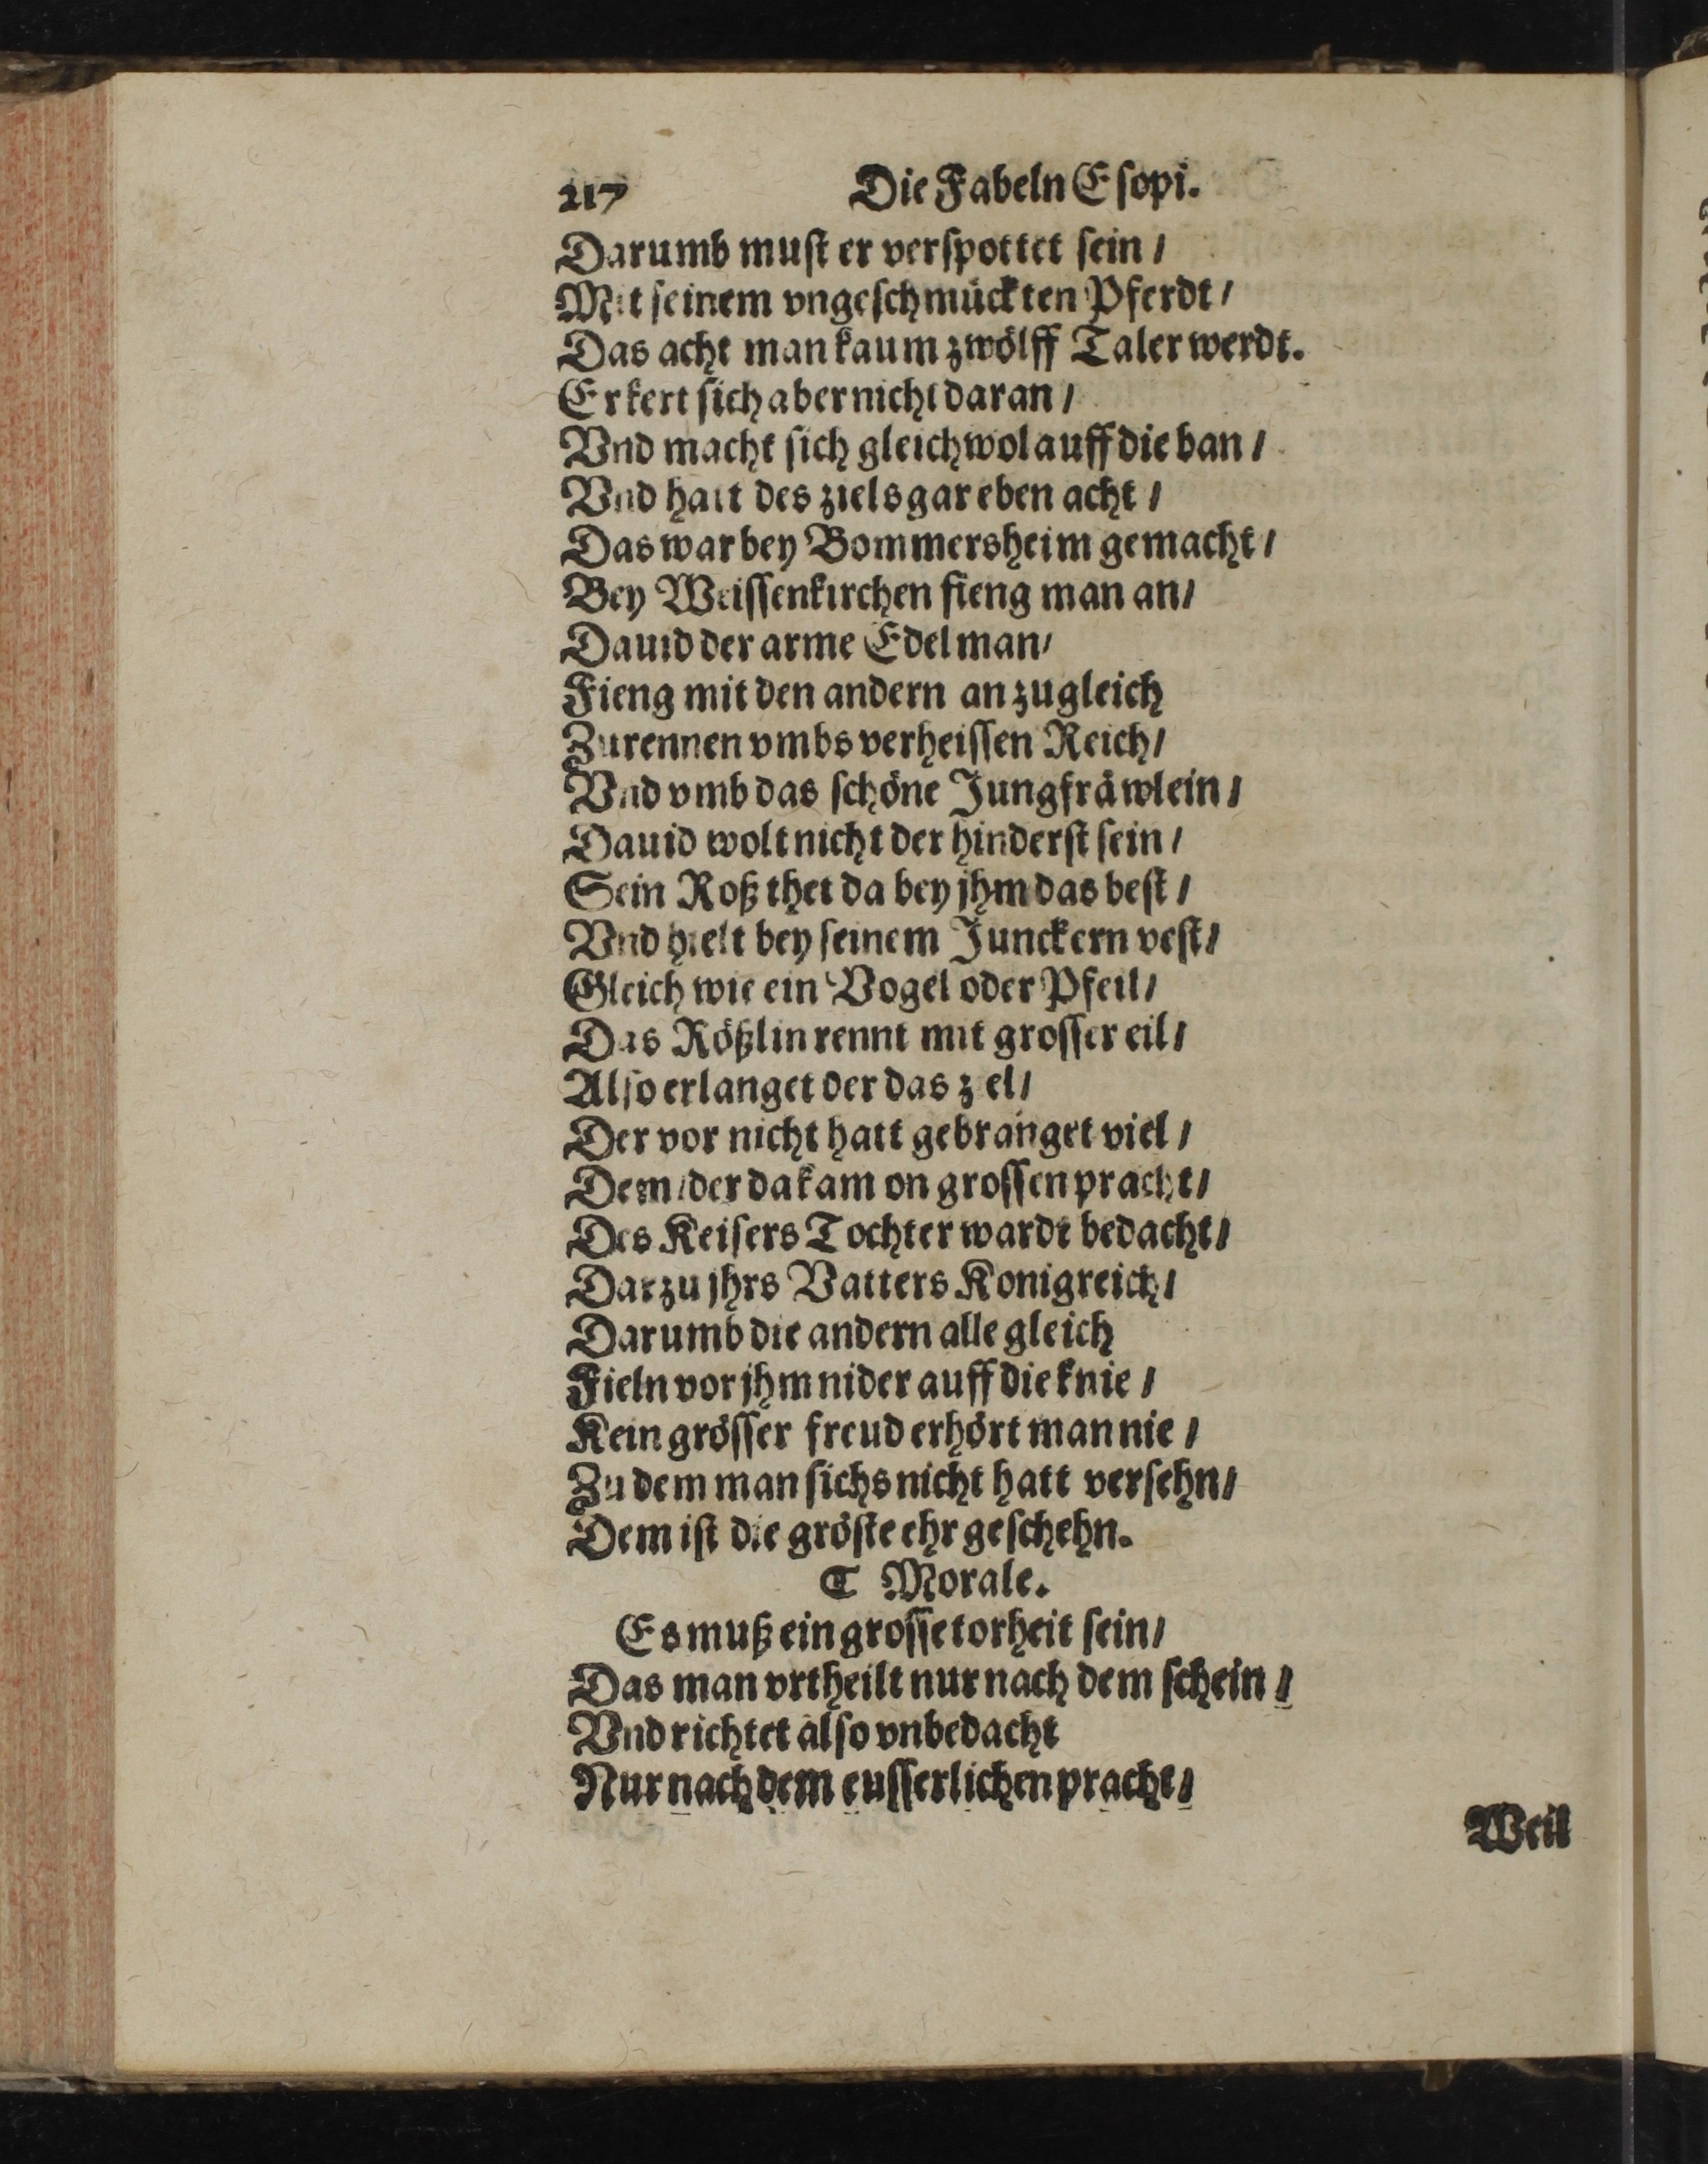 217 Die Fabeln Esopi.
Darumb must er verspottet sein /
Mit seinem vngeschmückten Pferdt /
Das acht man kaum zwölff Taler werdt.
Er kert sich aber nicht daran /
Vnd macht sich gleichwol auff die ban /
Vnd hatt des ziels gar eben acht /
Das war bey Bommersheim gemacht /
Bey Weissenkirchen fieng man an /
Dauid der arme Edelman /
Fieng mit den andern an zugleich
Zurennen vmbs verheissen Reich /
Vnd vmb das schöne Jungfräwlein /
Dauid wolt nicht der hinderst sein /
Sein Roß thet da bey jhm das best /
Vnd hielt bey seinem Junckern vest /
Gleich wie ein Vogel oder Pfeil /
Das Rößlin rennt mit grosser eil /
Also erlanget der das z el /
Der vor nicht hatt gebranget viel /
Dem / der da kam on grossen pracht /
Des Keisers Tochter wardt bedacht /
Darzu jhrs Vatters Konigreich /
Darumb die andern alle gleich
Fieln vor jhm nider auff die knie /
Kein grösser freud erhört man nie /
Zu dem man sichs nicht hatt versehn /
Dem ist die gröste ehr geschehn.
C Morale.
Es muß ein grosse torheit sein /
Das man vrtheilt nur nach dem schein /
Vnd richtet also vnbedacht
Nur nach dem eusserlichen pracht /
Weil